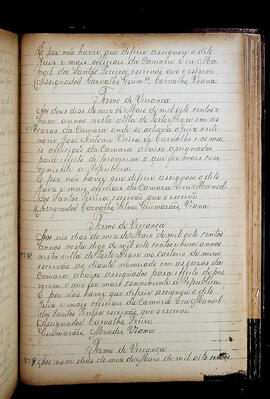 E por não haver que deferir assignou o dito
Juiz e mais officiaes da Camara Eu Ma-
noel dos Santos Pereira escrivão que o escrevi
Assignados Carvalho Guimes. Carvalho Viana
Termo de Vereança
Aos dous dias do mez de Maio de mil oito centos e
hum annos nesta villa de Porto Alegre em as
cazas da Camara onde se achava o Juiz ordi-
nario José Antonio de Carvalho e os ma-
is officiaes da Camara abaixo assignados
para effeito de proverem o que for mais con-
veniente a Republica
E por não haver que deferir assignou o dito
Juiz e mais officiaes da Camara Eu Manoel
dos Santos Pereira escrivão que o escrevi
Assignados Carvalho Guimarães Viana
Termo de Vereança
Aos seis dias do mez de Maio de mil oito centos
annos nesta digo de mil oito centos e hum annos
nesta villa de Porto Alegre no cartorio de mim
escrivão ao diante nomeado em as cazas da
Camara abaixo assignados para effeito de pro-
verem o que for mais conveniente a Republica
E por não haver que deferir assignou o dito
Juiz e mais officiaes da Camara Eu Manoel
dos Santos Pereira escrivão que o escrevi
Assignados Carvalho
Guimarães Mendes Viana
Termo de Vereança
Aos nove dias do mez de Maio de mil oito centos